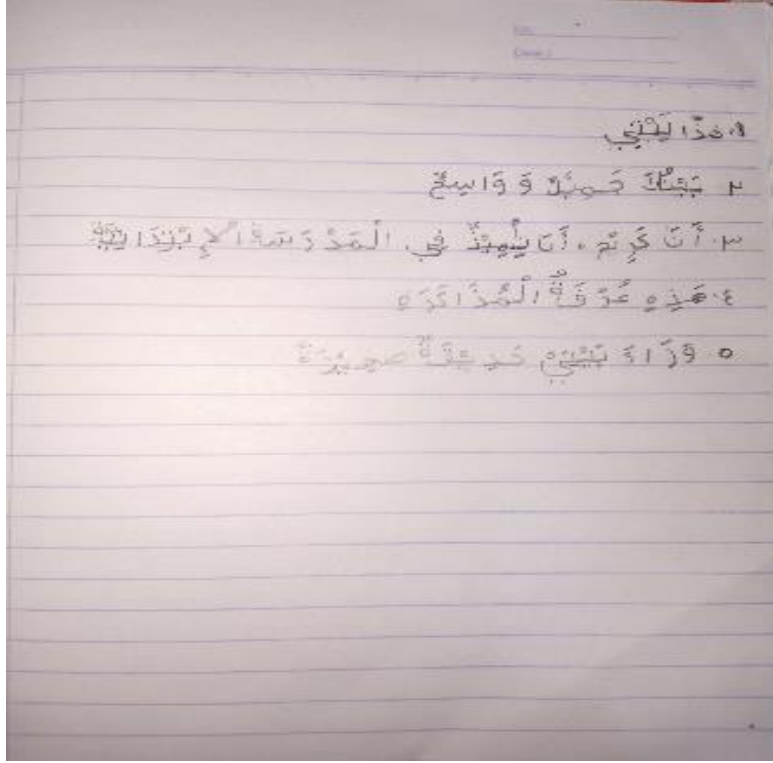 ١. هَذَا بَيْتِي
٢ بَيْتُكَ جَمِيْلٌ وَ وَاسِعٌ
٣. أَنَ كَرِيْم، أَنَا تِلْمِيْذٌ فِي الْمَدْرَسَةِ الْإِبْتِدَائِيَّةِ
٤. هَذِهِ غُرْفَةُ الْمُذَاكَرَهِ
٥ وَرَاءَ بَيْتِيْ حَدِيْقَةٌ صَغِيْرَةٌ